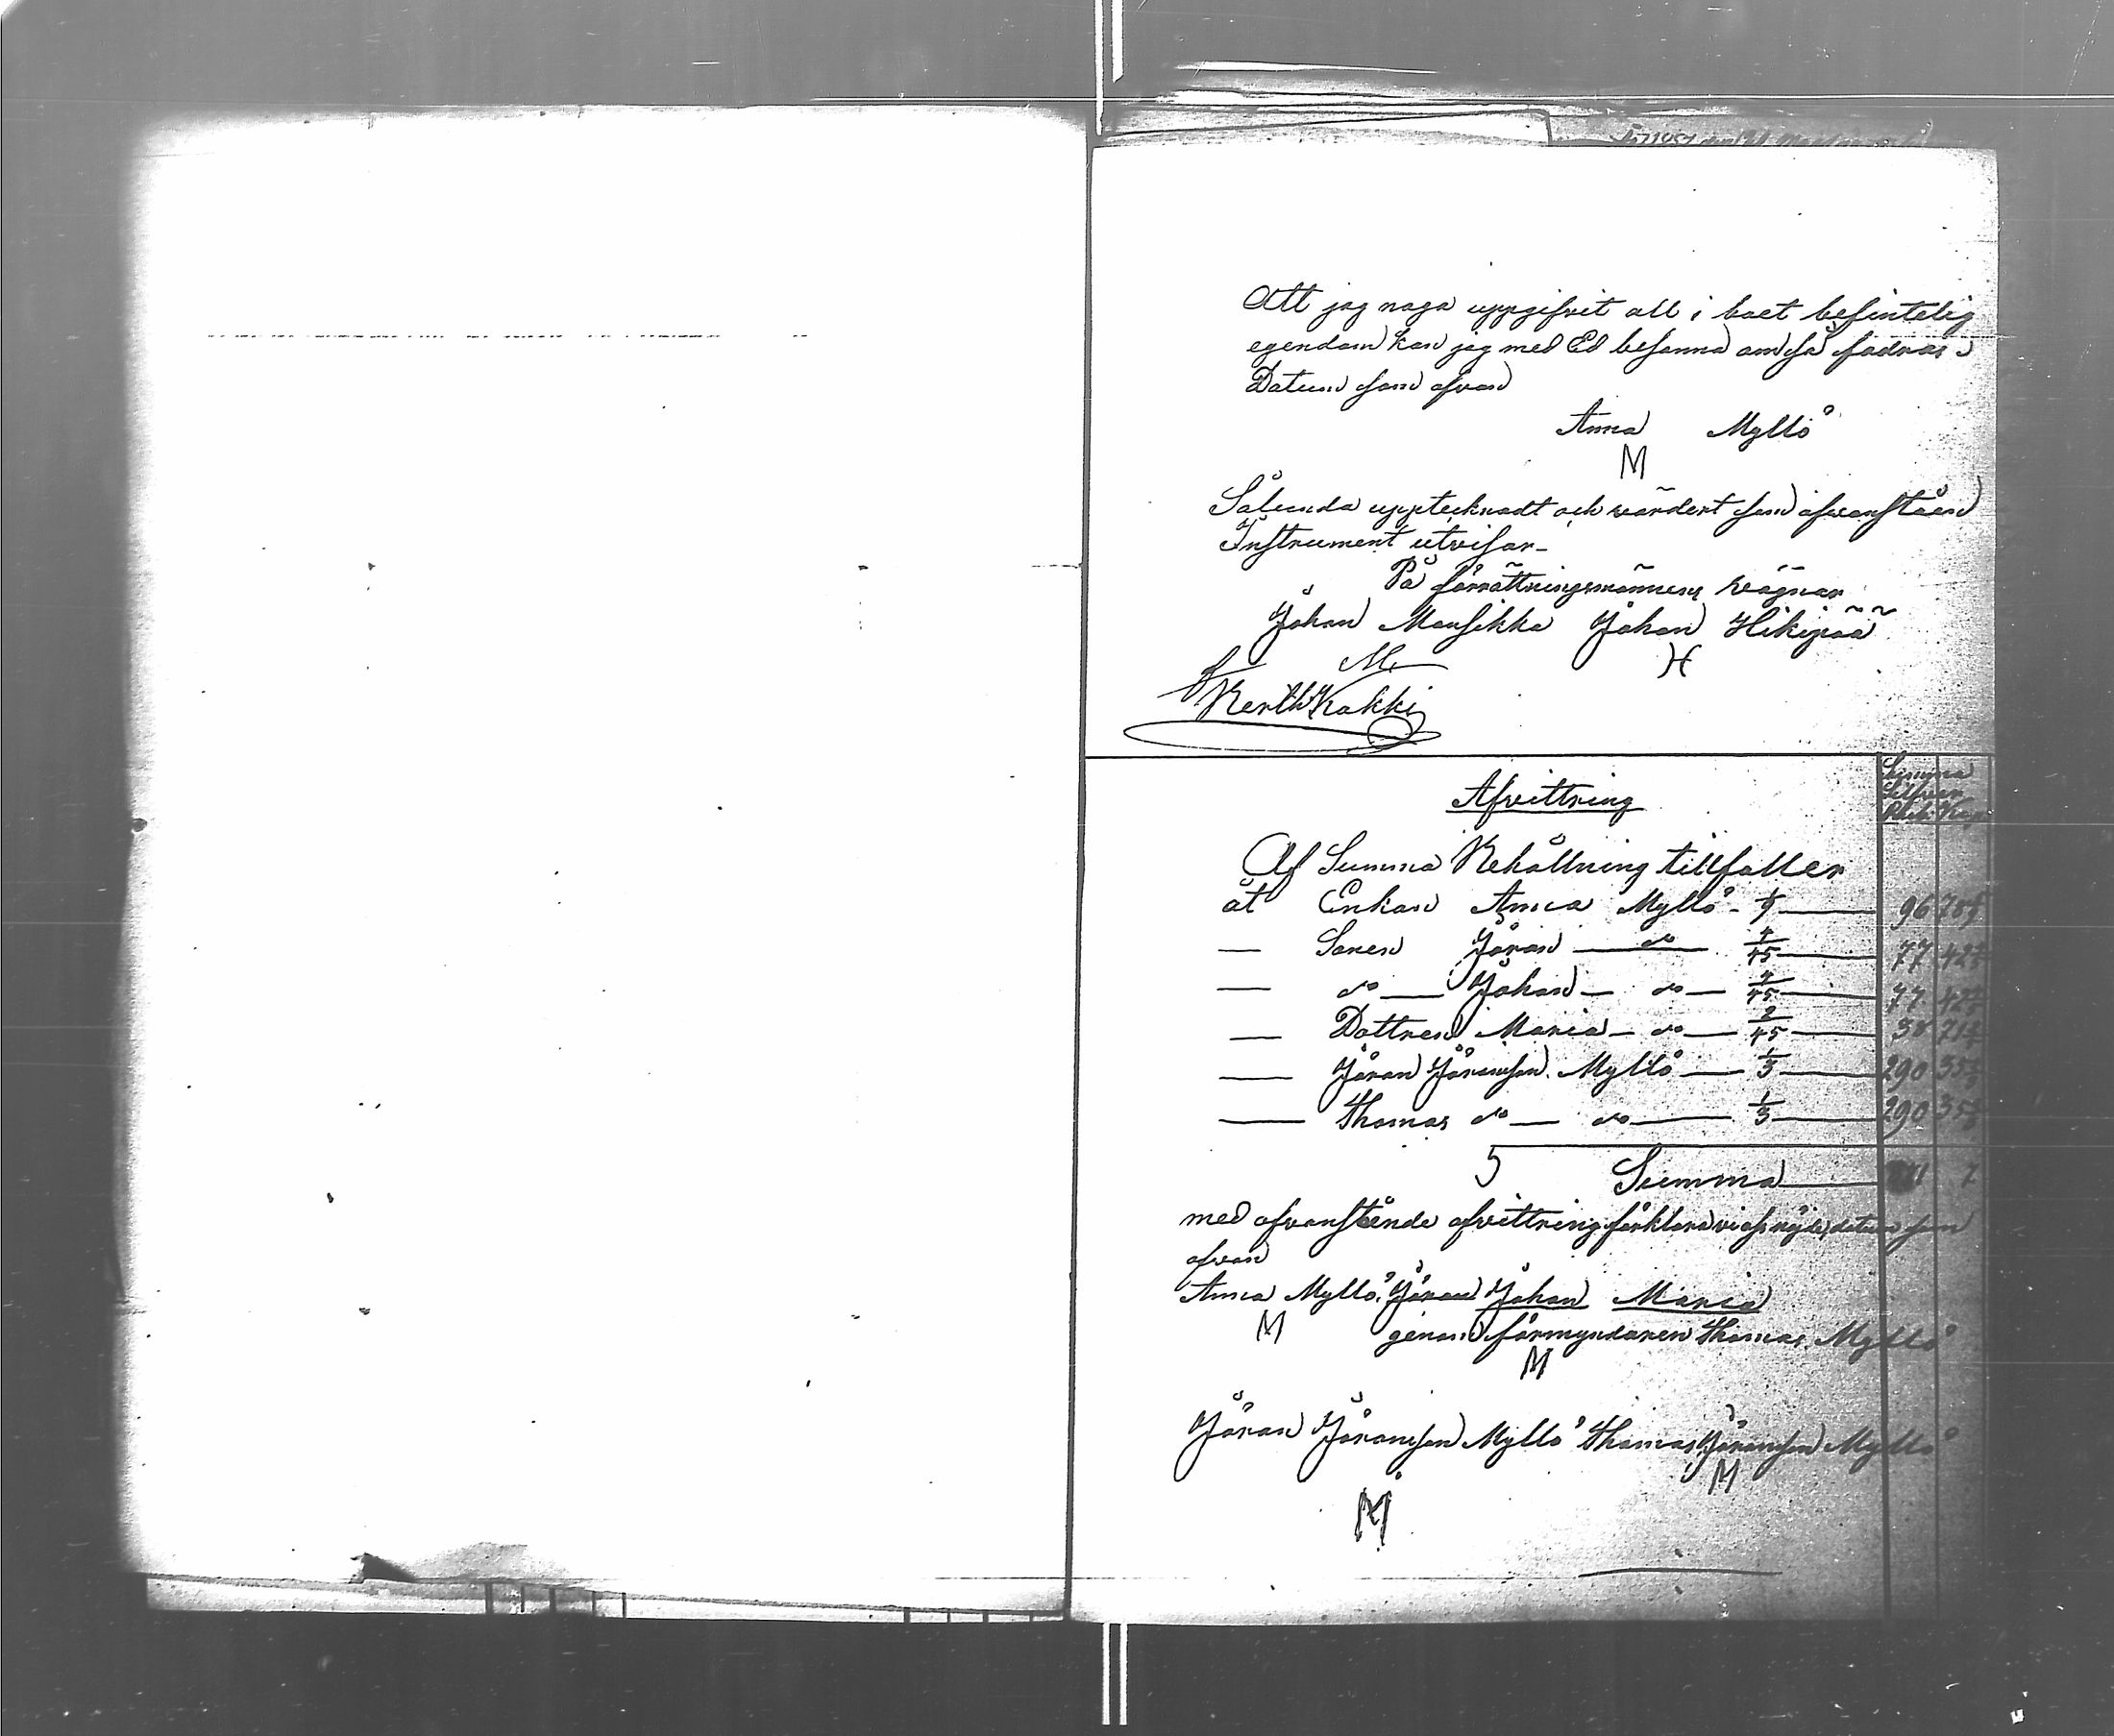 Att jag noga uppgifvit all i boet befintelig
egendom kan jag med Ed besanna om så fodras
Datum som ofvan
Anna Myllö
M
Sålunda upptecknadt och värdert som ofvanståend
Instrument utvisar
På förrättningsmännens vägnar
Johan Mansikka Johan Hikipää
M H
Kakki
Summa
Silfver
Rub. Kop
Afvittring
Af Summa Behållning tillfaller
åt Enkan Anna Myllö 1/9 96 78
— Sonen Jöran — do — 4/45 77 42
— do — Johan — do — 4/45 77 42
— Dottren Maria — do — 2/45 38 71
— Jöran Jöransson Myllö — 1/3 290 35
— Thomas do — do — 1/3 290 35
5 Summa 7
med ofvanstående afvittring förklara vi oss nöjde, datum som
ofvan
Anna Myllö, Jöran Johan Maria
M genom förmyndaren Thomas Myllö
M
Jöran Jöransson Myllö Thomas Jöransson Myllö
M
M